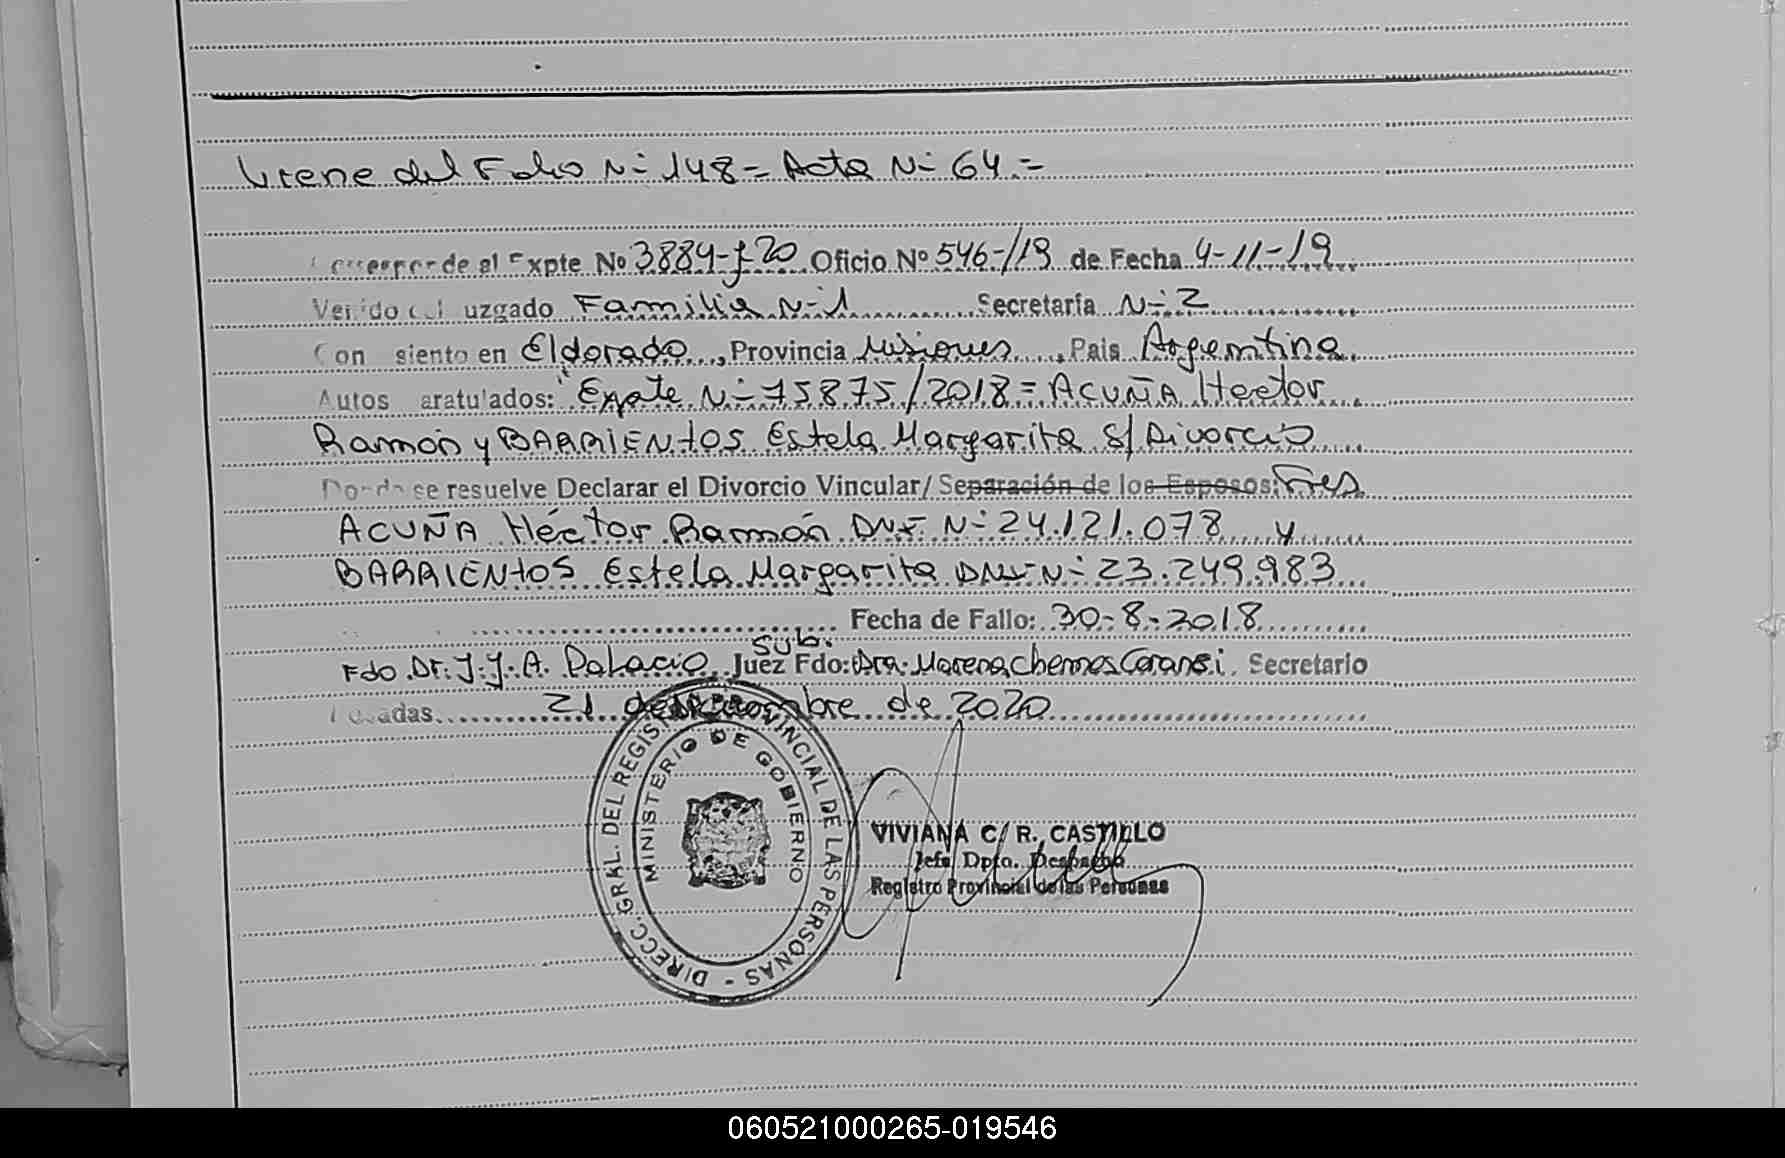 Viene del Folio Nº 148 = Acta Nº 64 =
Corresponde al Expte Nº 3884-J-20 Oficio Nº 546-/19 de Fecha 4-11-19
Venido del Juzgado Familia Nº 1 Secretaría Nº 2
Con asiento en Eldorado, Provincia Misiones, País Argentina
Autos caratulados: "Expte Nº 75875/2018 = ACUÑA Hector
Ramón y BARRIENTOS Estela Margarita S/ Divorcio
Donde se resuelve Declarar el Divorcio Vincular/ Separación de los Esposos:
ACUÑA Héctor Ramón DNI Nº 24.121.078 y
BARRIENTOS Estela Margarita DNI Nº 23.249.983
Fecha de Fallo: 30-8-2018
Sub.
Fdo Dr. J.J.A. Palacio Juez Fdo: Dra. Secretario
Posadas 21 de de 2020
DIRECC. GRAL. DEL REGISTRO PROVINCIAL DE LAS PERSONAS -
MINISTERIO DE GOBIERNO
VIVIANA C. R. CASTILLO
Jefa Dpto. Despacho
Registro Provincial de las Personas
060521000265-019546